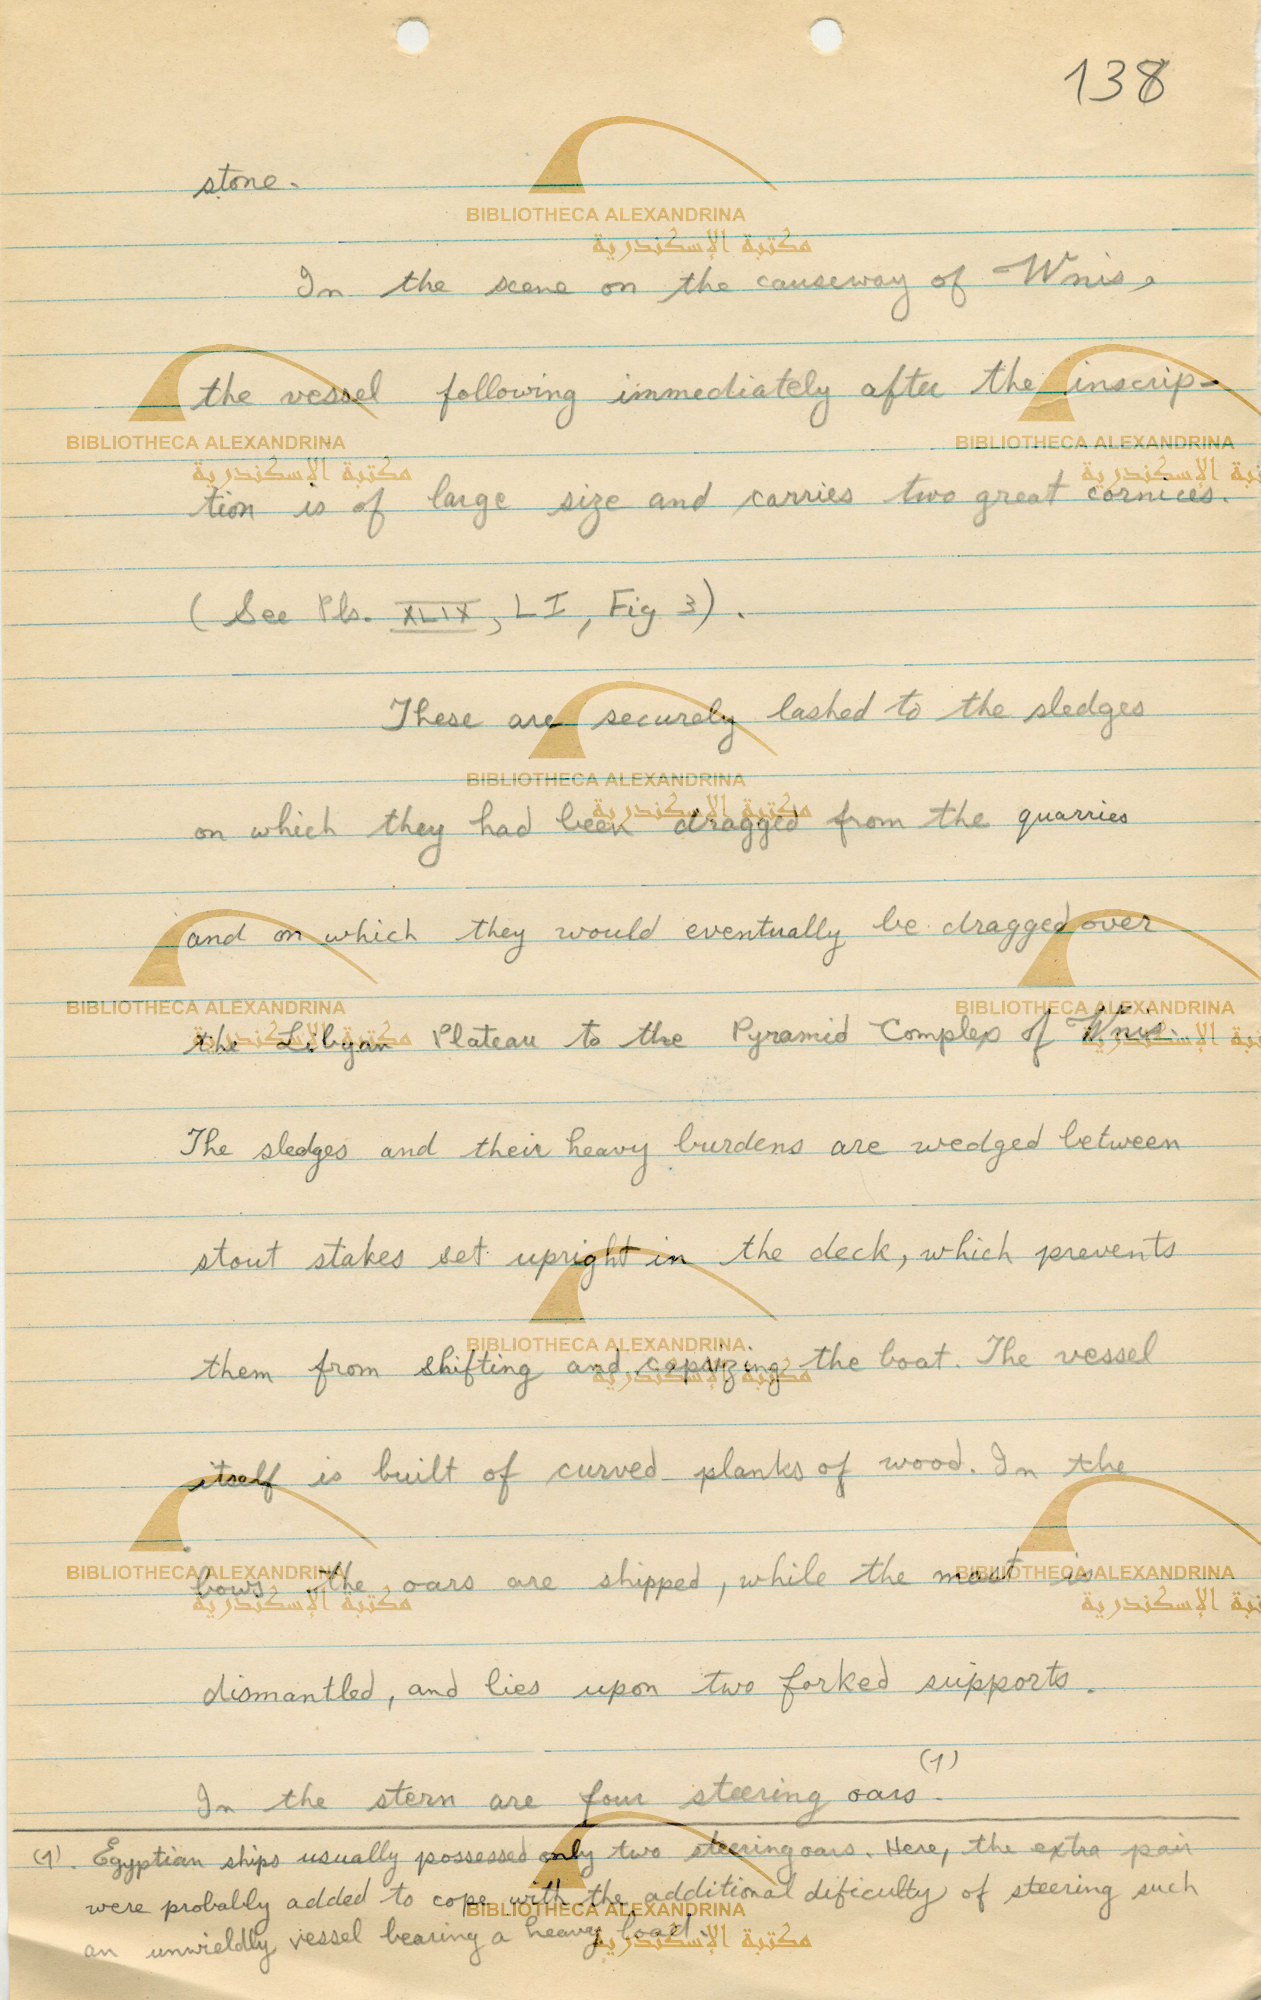 138
stone.
In the scene on the causeway of Wnis,
the vessel following immediately after the inscrip-
tion is of large size and carries two great cornices.
(See Pls. XLIX, LI, Fig 3).
These are securely lashed to the sledges
on which they had been dragged from the quarries
and on which they would eventually be dragged over
the Libyan Plateau to the Pyramid Complex of Wnis.
The sledges and their heavy burdens are wedged between
stout stakes set upright in the deck, which prevents
them from shifting and capsizing the boat. The vessel
itself is built of curved planks of wood. In the
bows the oars are shipped, while the mast is
dismantled, and lies upon two forked supports.
In the stern are four steering oars (1).
(1). Egyptian ships usually possessed only two steering oars. Here, the extra pair
were probably added to cope with the additional dificulty of steering such
an unwieldly vessel bearing a heavy load.
BIBLIOTHECA ALEXANDRINA
مكتبة الإسكندرية